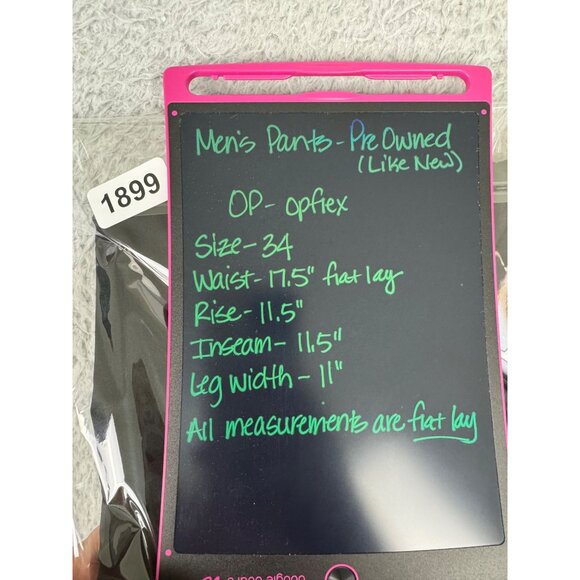 1899
Men's Pants - Pre Owned
(Like New)
OP - Opflex
Size - 34
Waist - 17.5" flat lay
Rise - 11.5"
Inseam - 11.5"
Leg width - 11"
All measurements are flat lay